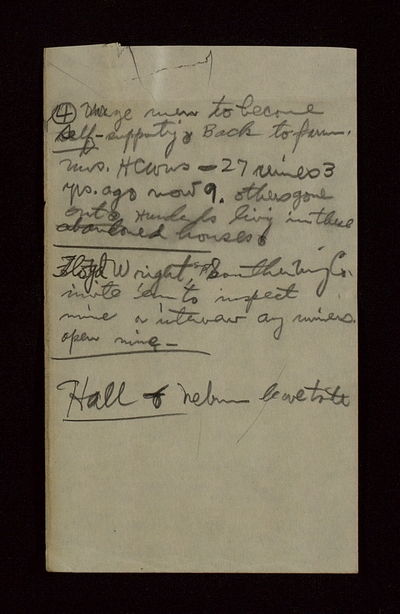 ④ Urge men to become
self-supporting Back to farm.
Mrs. HCWns — 27 mines 3
yrs. ago now 9. others gone
onto Hundreds living in these
abandoned houses
Floyd Wright, Southern Co.
invite 'em to inspect
mine or interview any miners.
open mine —
Hall &